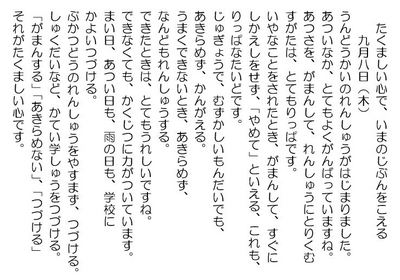 たくましい心で、いまのじぶんをこえる
九月八日(木)
うんどうかいのれんしゅうがはじまりました。
あついなか、とてもよくがんばっていますね。
あつさを、がまんして、れんしゅうにとりくむ
すがたは、とてもりっぱです。
いやなことをされたとき、がまんして、すぐに
しかえしをせず、「やめて」といえる、これも、
りっぱなたいどです。
じゅぎょうで、むずかしいもんだいでも、
あきらめず、かんがえる。
うまくできないとき、あきらめず、
なんどもれんしゅうする。
できたときは、とてもうれしいですね。
できなくても、かくじつに力がついています。
まい日、あつい日も、雨の日も、学校に
かよいつづける。
ぶかつどうのれんしゅうをやすまず、つづける。
しゅくだいなど、かてい学しゅうをつづける。
「がまんする」「あきらめない」、「つづける」
それがたくましい心です。